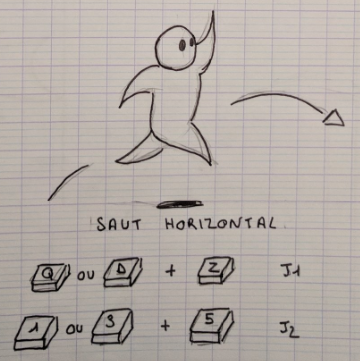 SAUT HORIZONTAL
Q ou D + Z J1
1 ou 3 + 5 J2